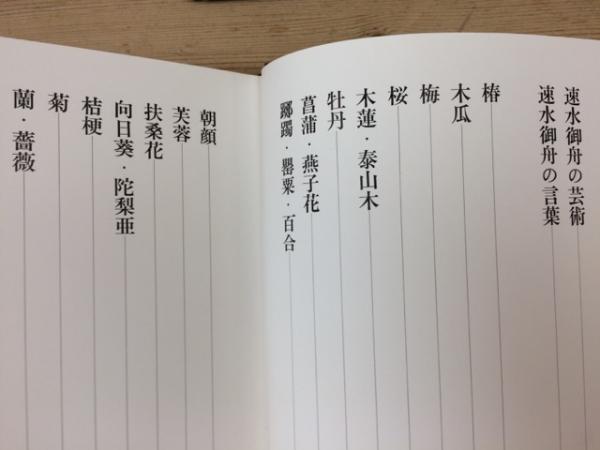 速水御舟の芸術
速水御舟の言葉
椿
木瓜
梅
桜
木蓮・泰山木
牡丹
菖蒲・燕子花
躑躅・罌粟・百合
朝顔
芙蓉
扶桑花
向日葵・陀梨亜
桔梗
菊
蘭・薔薇